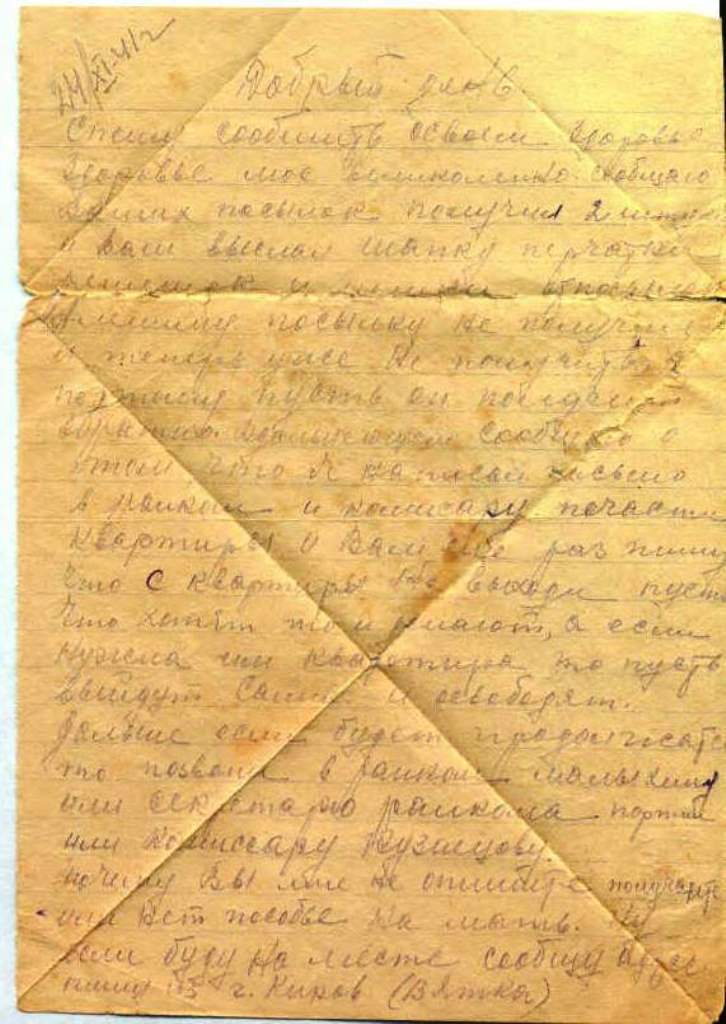 24/XI-41г
Добрый день.
Спешу сообщить о своем здоровье
здоровье мое великолепно. сообщаю
Ваших посылок получил 2 штук
а Вам выслал шапку перчатки
посылку не получил
и теперь уже не получить, я
пусть он
сообщаю о
том что я написал письмо
в райком и комисару по части
квартиры и Вам еще раз пишу
что с квартиры не выходи пусть
что хотят то и делают, а если
нужна им квартира то пусть
выйдут сами и освободят.
Дальше если будет продолжать
то позвони в райком
или секретарю райкома партии
или комиссару Кузнецову.
почему Вы мне не опишите получаете
или нет пособье на мать. Ну
если буду на месте сообщу адрес
пишу из г. Киров (Вятка)